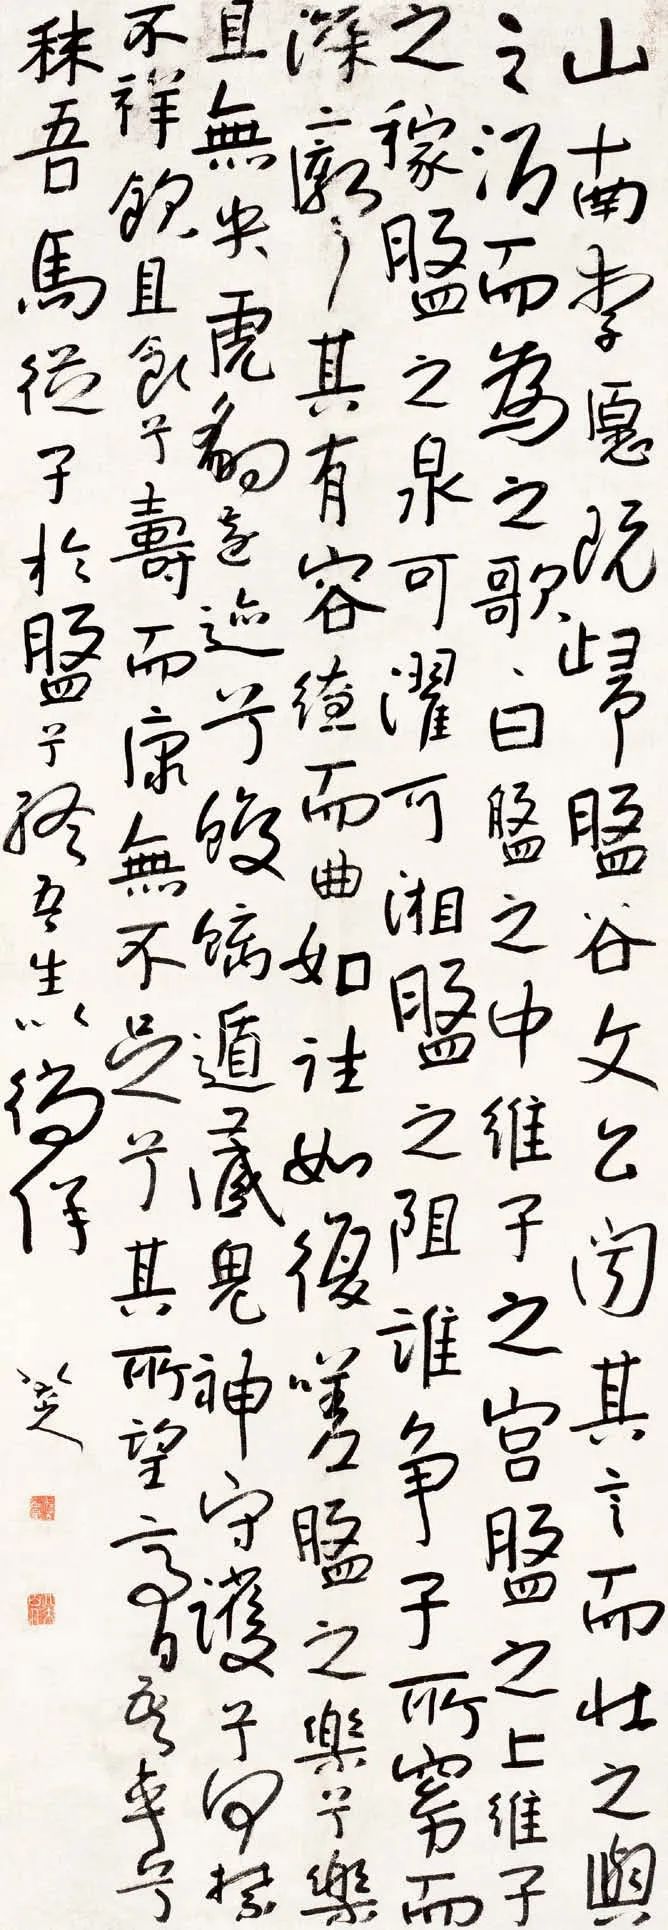 山南李愿既歸盤谷文公聞其言而壯之與
之酒而為之歌曰盤之中維子之宮盤之上維子
之稼盤之泉可濯可湘盤之阻誰爭子所窈而
深廓其有容繚而曲如往如復嗟盤之樂兮樂
且無央虎豹遠迹兮蛟螭遁藏鬼神守護兮呵禁
不祥飲且食兮壽而康無不足兮其所望膏吾車兮
秣吾馬從子於盤兮終吾生以徜徉
八大山人